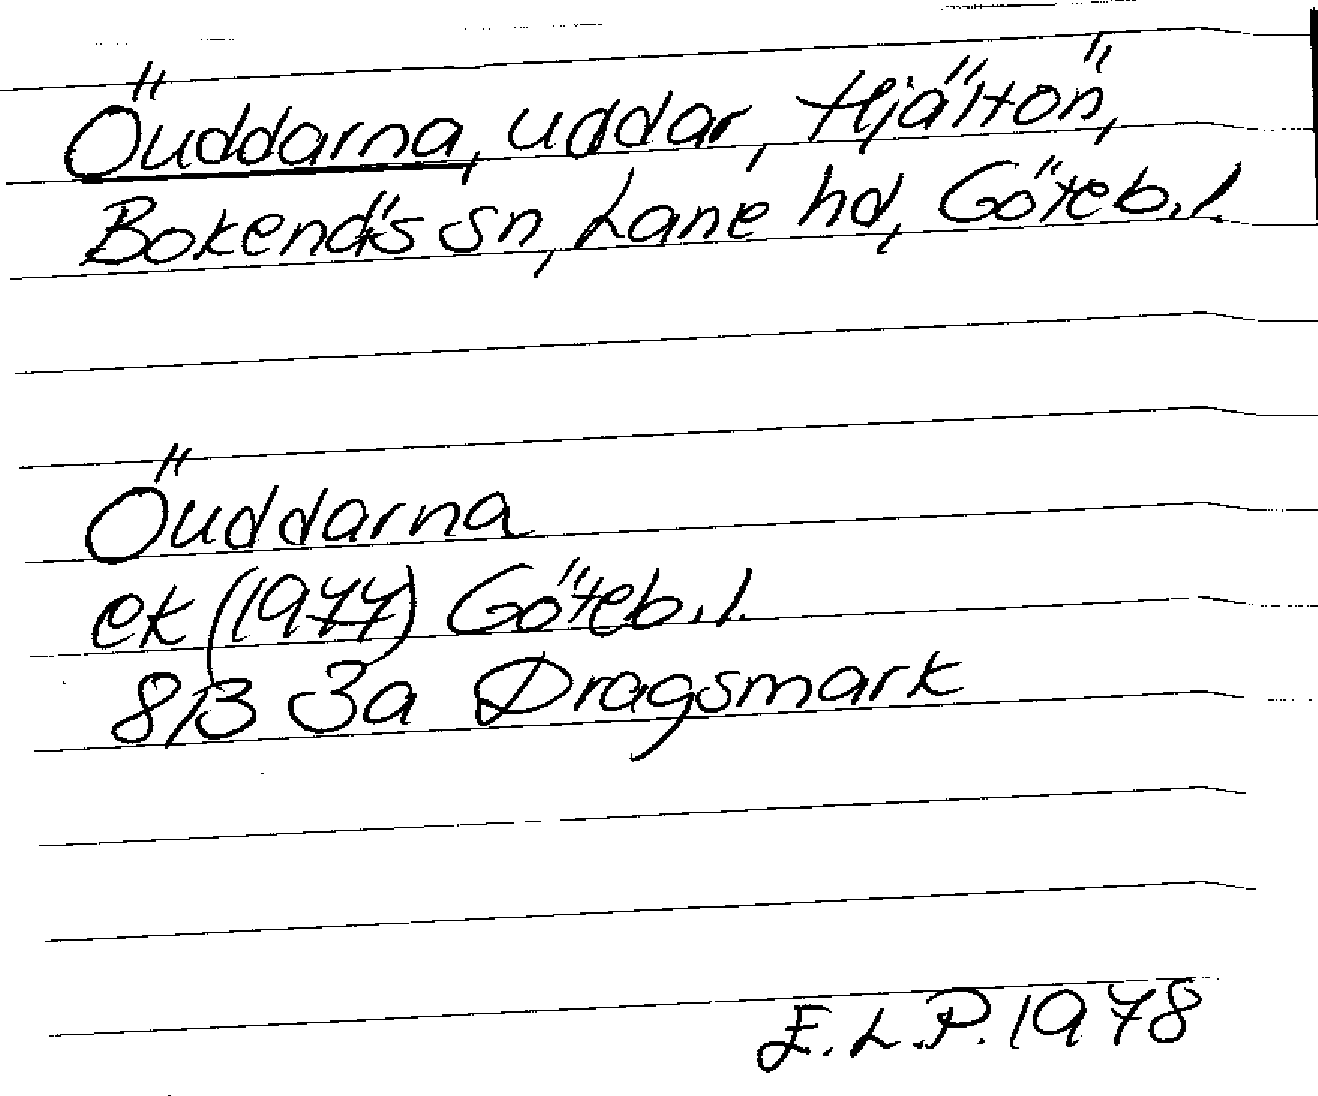 Öuddarna, uddar, Hjältön,
Bokenäs sn, Lane hd, Göteb.l.
Öuddarna
ek (1977) Göteb.l.
8B 3a Dragsmark
E.L.P. 1978